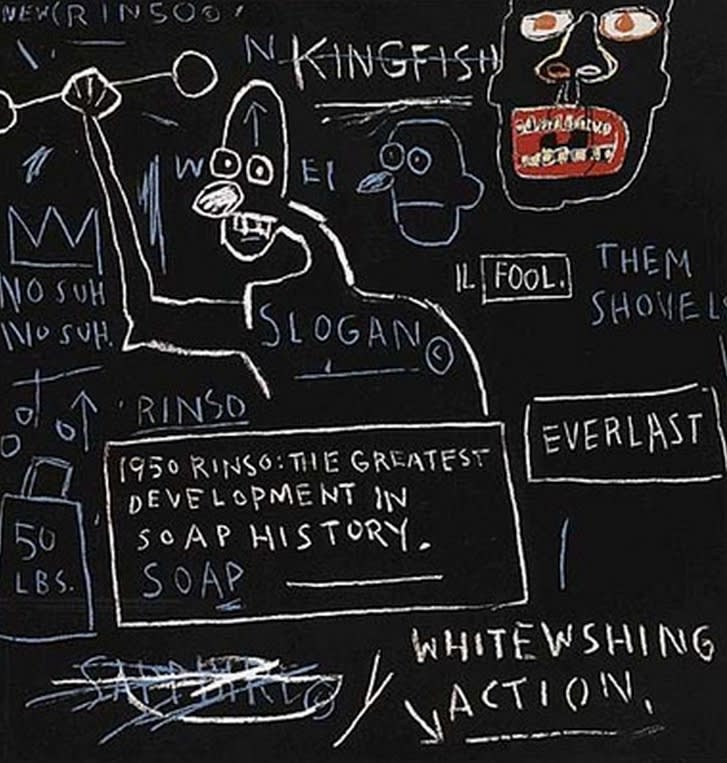 NEW (RINSO©
N KINGFISH
W
EI
NO SUH
NO SUH.
SLOGAN ©
IL FOOL.
THEM
SHOVEL
RINSO
EVERLAST
1950 RINSO: THE GREATEST
DEVELOPMENT IN
SOAP HISTORY.
SOAP
50
LBS.
WHITEWSHING
ACTION.